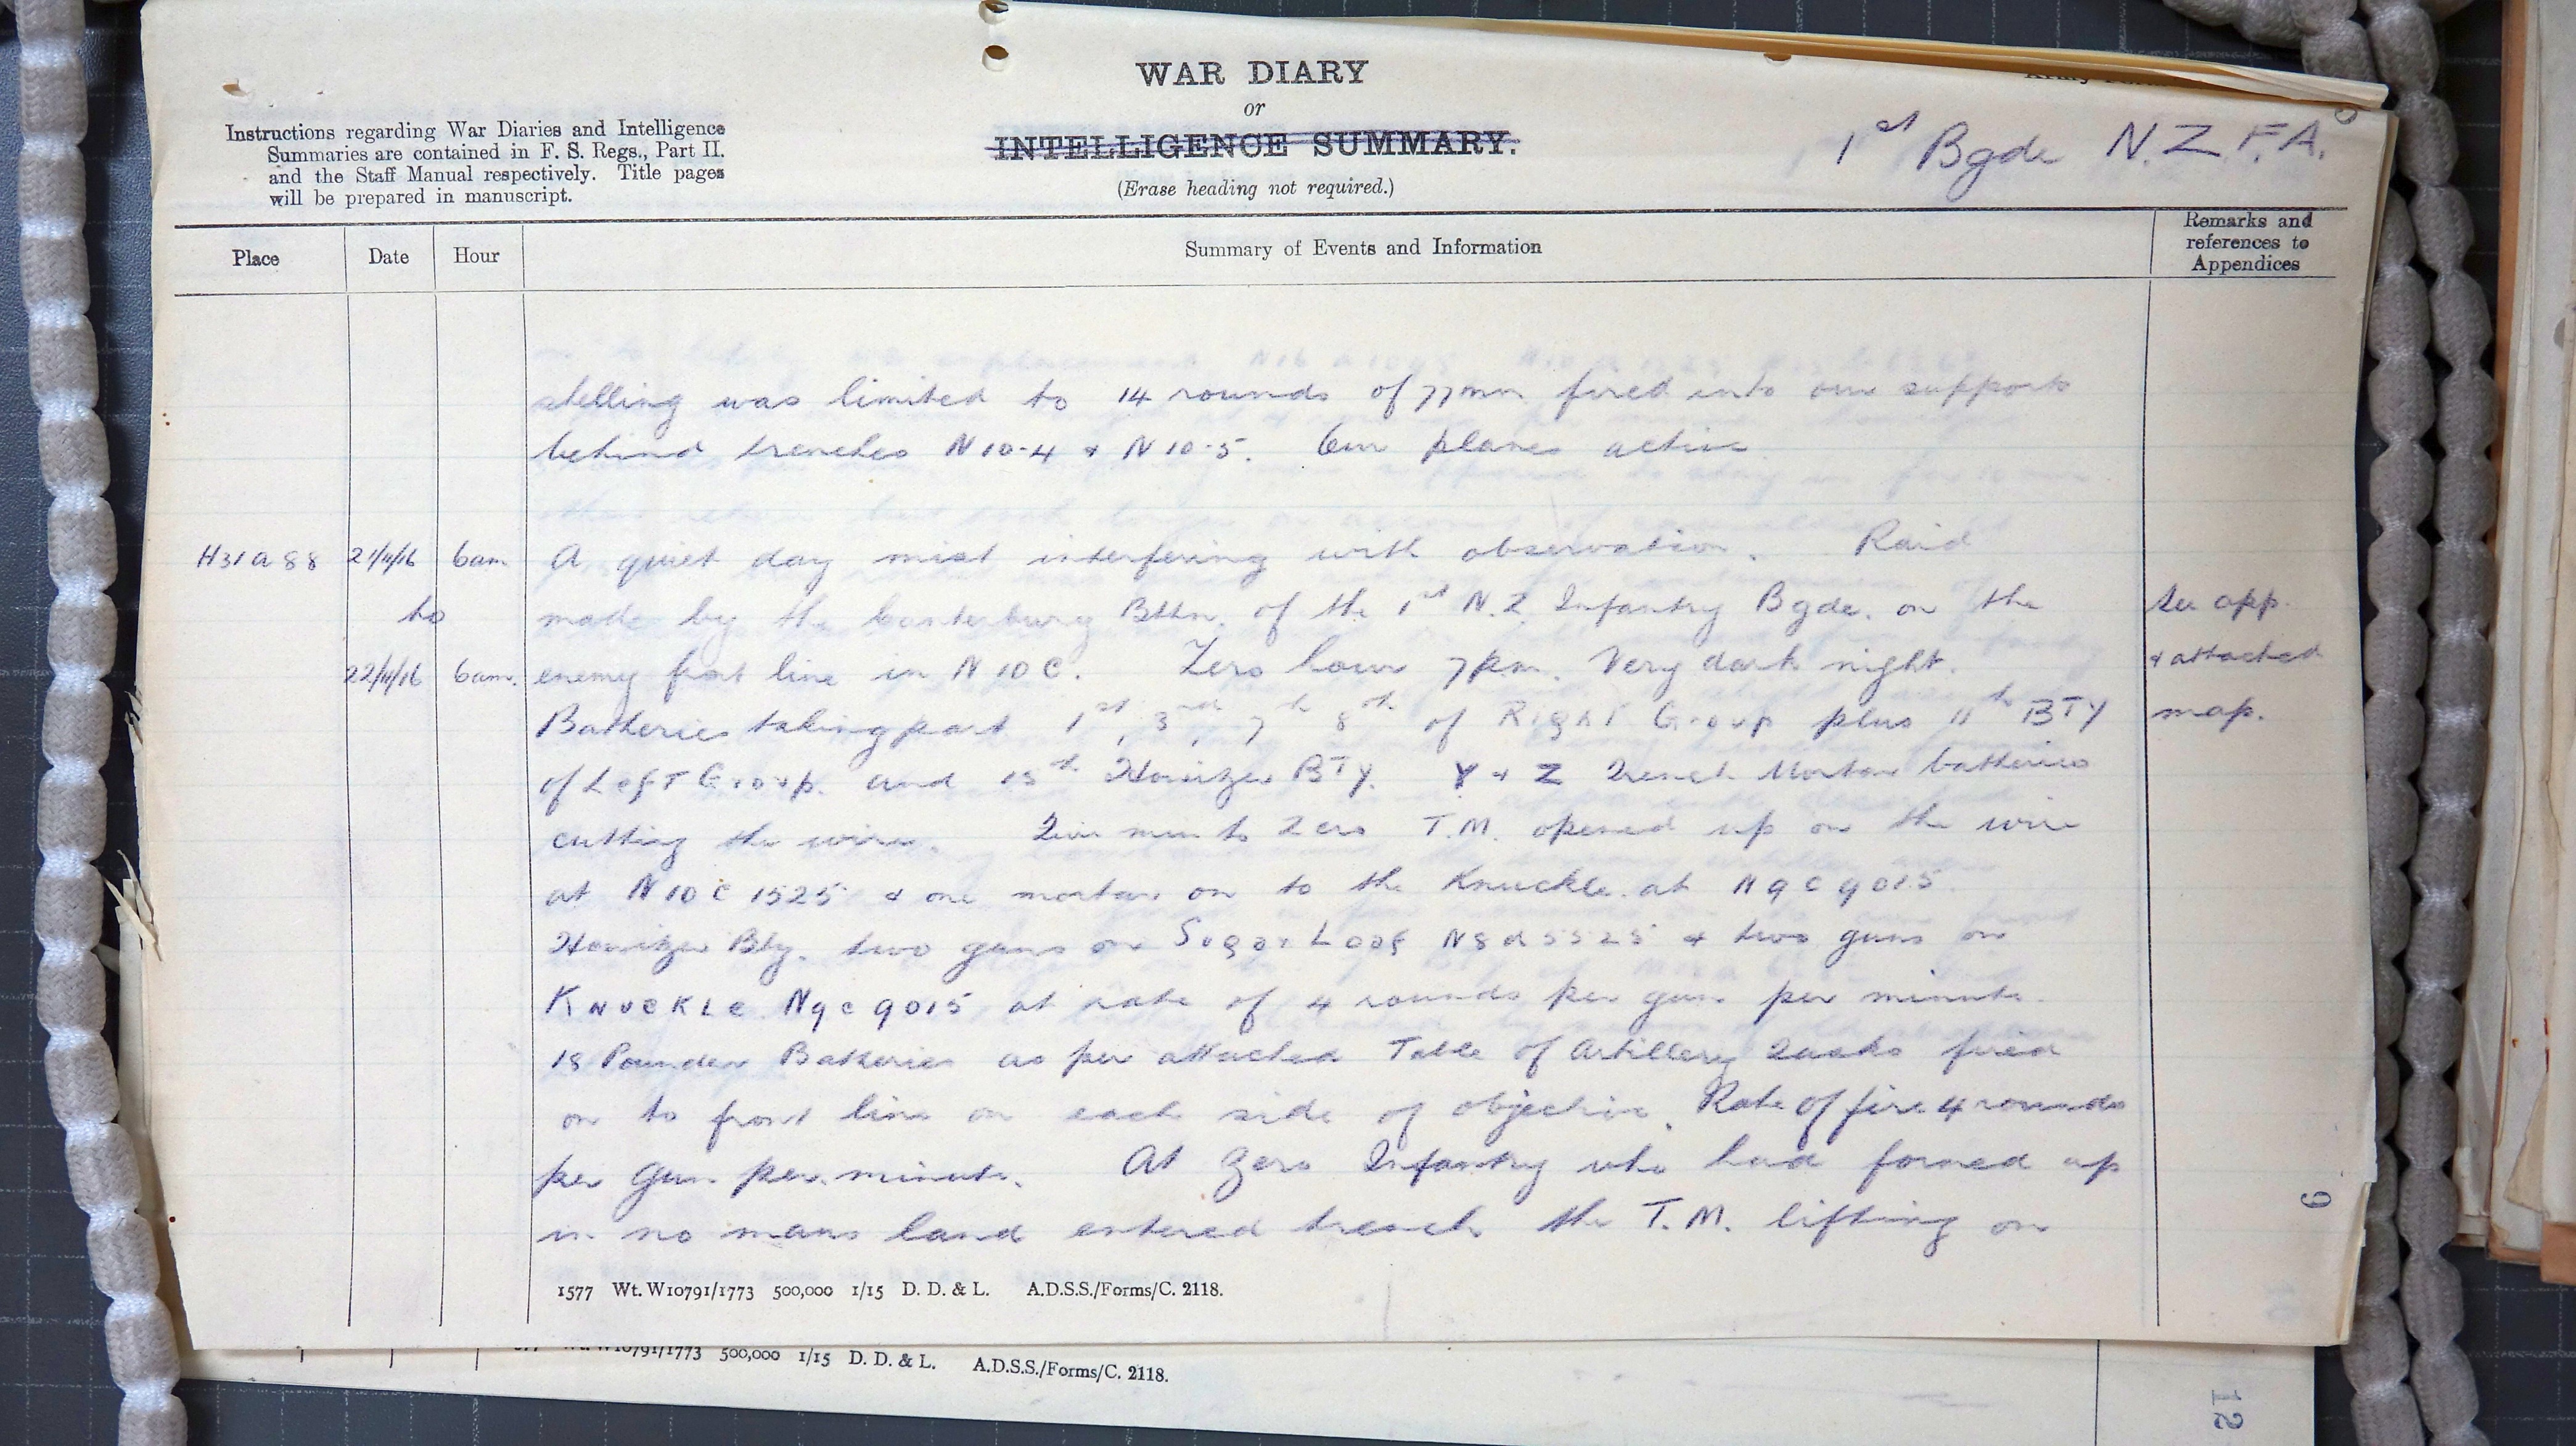 WAR DIARY
or
INTELLIGENCE SUMMARY.
(Erase heading not required.)
Instructions regarding War Diaries and Intelligence
Summaries are contained in F. S. Regs., Part II.
and the Staff Manual respectively. Title pages
will be prepared in manuscript.
1st Bgde N.Z.F.A.
Place Date Hour Summary of Events and Information Remarks and references to Appendices
shelling was limited to 14 rounds of 77mm fired into our supports
behind trenches N10-4 & N10-5. Our planes active
H31a88 21/11/16 6am A quiet day mist interfering with observation. Raid
to made by the Canterbury Bttn. of the 1st N.Z. Infantry Bgde. on the See app.
22/11/16 6am. enemy front line in N10C. Zero hour 7pm. Very dark night. & attached
Batteries taking part 1st, 3rd, 7th 8th of Right Group plus 11th BTY map.
of Left Group. and 15th Howitzer BTY. Y & Z Trench Mortar batteries
cutting the wire. min to Zero T.M. opened up on the wire
at N10C1525 & one mortar on to the Knuckle. at N9C9015.
Howitzer Bty. two guns on Sugar Loaf N8d5525 & two guns on
KNUCKLE N9c9015 at rate of 4 rounds per gun per minute.
18 Pounder Batteries as per attached Table of Artillery Tasks fired
on to front line on each side of objective. Rate of fire 4 rounds
per Gun per minute. At Zero Infantry who had formed up
in no mans land entered trench the T.M. lifting on
1577 Wt. W10791/1773 500,000 1/15 D. D. & L. A.D.S.S./Forms/C. 2118.
9
10791/1773 500,000 1/15 D. D. & L. A.D.S.S./Forms/C. 2118.
12